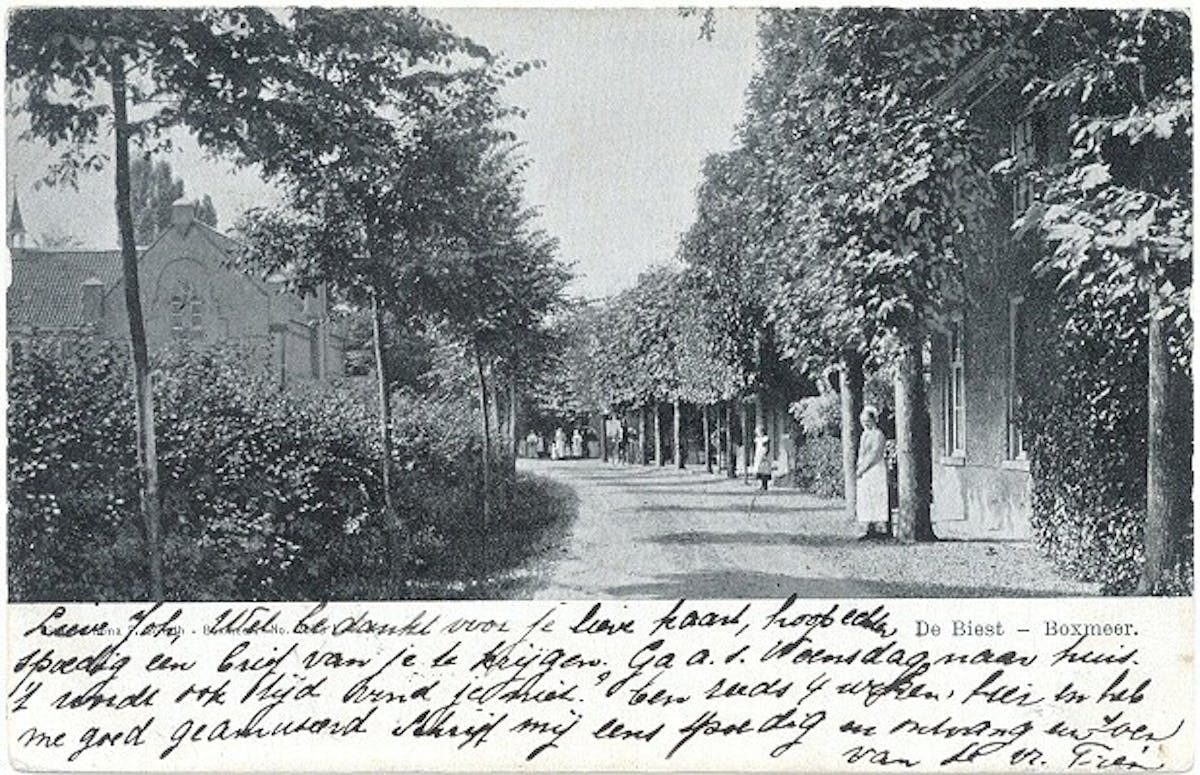 Lieve Joh. Wel bedankt voor je lieve kaart, hoop echter
De Biest – Boxmeer.
spoedig een brief van je te krijgen. Ga a.s. Woensdag naar huis.
't wordt ook tijd vind je niet? Ben reeds 4 weken hier en heb
me goed geamuseerd Schrijf mij eens spoedig en ontvang een zoen
van de vr. Trien